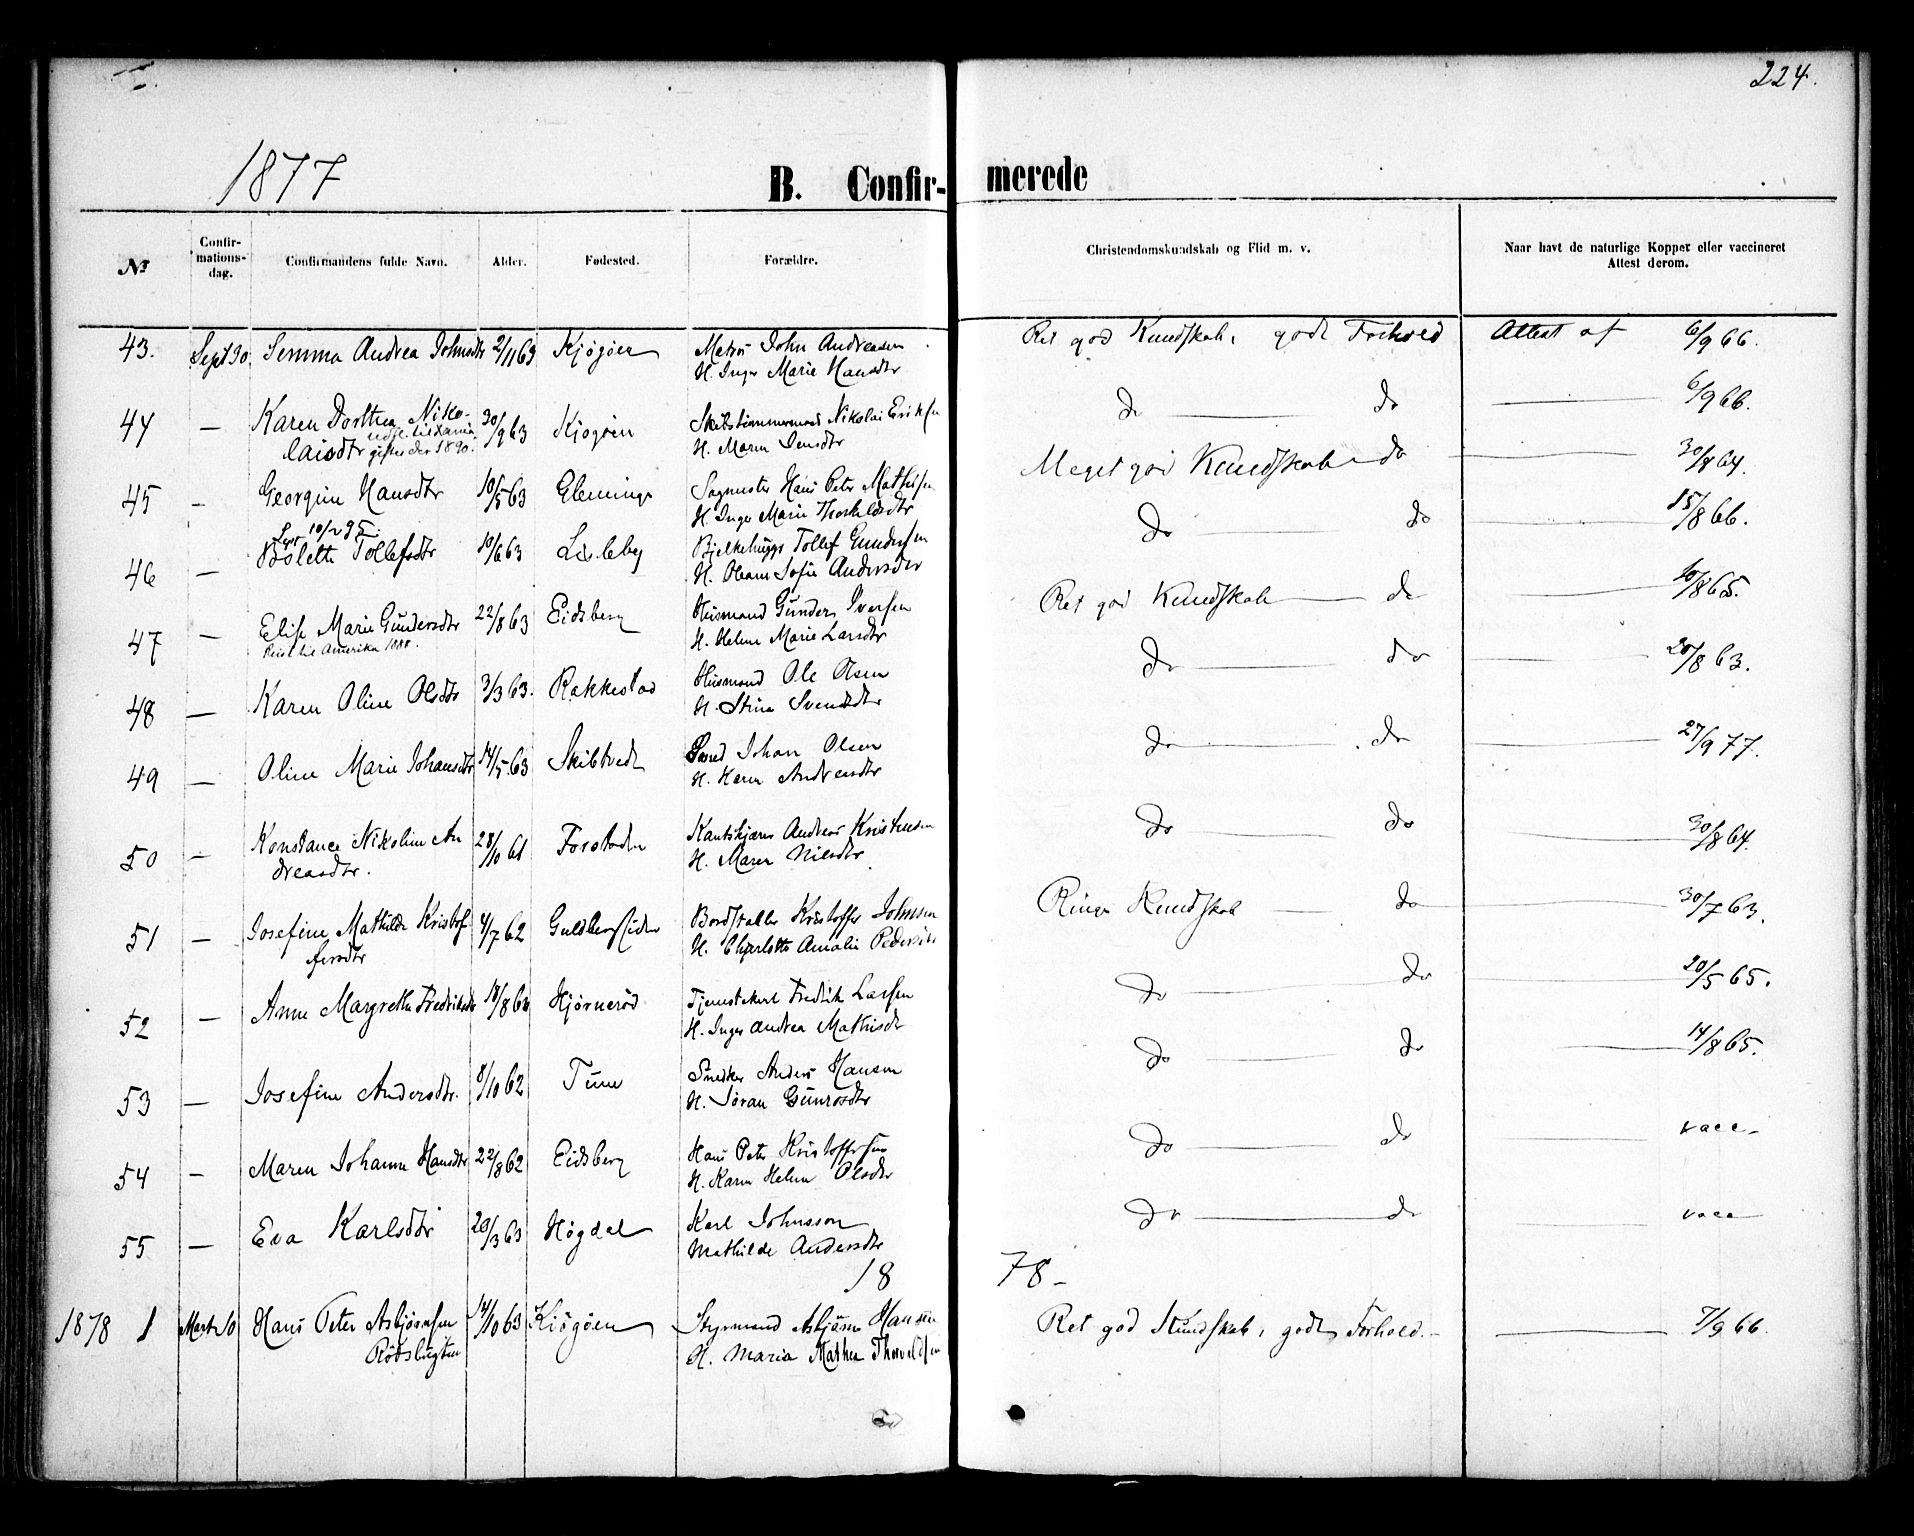 224.
1877
B. Confir-merede
№
Confir-
mations-
dag.
Confirmandens fulde Navn.
Alder.
Fødested.
Forældre.
Christendomskundskab og Flid m. v.
Naar havt de naturlige Kopper eller vaccineret
Attest derom.
43. Sept 30. Semma Andrea Johnsdtr 2/11 63 Kjøgöen Matros John Andreasen Ret god Kundskab, godt Forhold Attest af 6/9 66.
H. Inger Marie Hansdtr
44 — Karen Dorthea Niko- 30/9 63 Kjøgöen Skibstømmermand Nikolai Eriksen do — do — 6/9 66.
laisdtr gifter der 1890. H. Maren Jensdtr
45 — Georgine Hansdtr 10/5 63 Glemminge Sagmester Hans Peter Mathisen Meget god Kundskab — do — 30/8 64.
H. Inger Marie Thorkildsdtr
46 — Bolette Tollefsdtr 10/6 63 Lisleby Bjelkehugger Tollef Gundersen do — do 15/8 66.
H. Oleane Sofie Andersdtr
47 — Elise Marie Gundersdtr 22/8 63 Eidsberg Husmand Gunder Iversen Ret god Kundskab — do — 10/8 65.
Reist til Amerika 1888. H. Helene Marie Larsdtr
48 — Karen Oline Olsdtr 3/3 63. Rakkestad Husmand Ole Olsen do — do — 20/8 63.
H. Stina Svendsdtr
49 — Oline Marie Johansdtr 14/5 63 Skibtvedt Johan Olsen do — do — 27/9 77.
H. Karen Andreasdtr
50 — Konstance Nikoline An 28/10 61 Forstaden Andreas Kristensen do — do — 30/8 64.
dreasdtr. H. Maren Nilsdtr
51 — Josefine Mathilde Kristof 4/7 62 Guldbergsiden Bordstabler Kristoffer Johnsen Ringe Kundskab — do — 30/7 63.
fersdtr H. Charlotte Amalie Pedersdtr
52 — Anne Margrethe Fredriksdtr 18/8 62 Hjørnerød Tjenestekarl Fredrik Larsen do — do — 20/5 65.
H. Inger Andrea Mathisdtr
53 — Josefine Andersdtr. 8/10 62 Tune Snedker Anders Hansen do — do — 14/8 65.
H. Jøran Gunrosdtr
54 — Maren Johanne Hansdtr 22/8 62 Eidsberg Hans Peter Kristoffersen do — do vacc.
H. Karen Helene Olsdtr
55 — Eva Karlsdtr 20/3 63 Høgdal Karl Johnsson do — do — vacc
Mathilde Andersdtr
18 78 —
1878 1 Mart 10 Hans Peter Asbjørnsen 14/10 63 Kjøgöen Styrmand Asbjørn Hansen Ret god Kundskab, godt Forhold. — 7/9 66.
Rødsbugten H. Maria Mathea Thorvaldsen